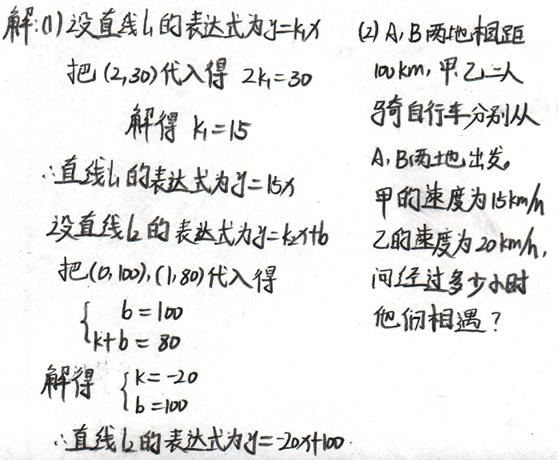 解:(1)设直线l₁的表达式为y=k₁x
把(2,30)代入得 2k₁=30
解得 k₁=15
∴直线l₁的表达式为y=15x
设直线l₂的表达式为y=k₂x+b
把(0,100),(1,80)代入得
{ b=100
k+b=80
解得 { k=-20
b=100
∴直线l₂的表达式为y=-20x+100.
(2) A,B两地相距
100km,甲.乙二人
骑自行车分别从
A,B两地出发。
甲的速度为15km/h
乙的速度为20km/h,
问经过多少小时
他们相遇?